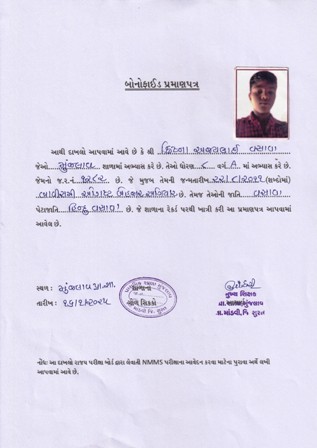 બોનોફાઈડ પ્રમાણપત્ર
આથી દાખલો આપવામાં આવે છે કે શ્રી વસાવા
જેઓ મુંજલાવ શાળામાં અભ્યાસ કરે છે. તેઓ ધોરણ ૮ વર્ગ A માં અભ્યાસ કરે છે.
જેમનો જ.ર.નં. છે. જે મુજબ તેમની જન્મતારીખ ૨૨/૮/૨૦૧૧ (શબ્દોમાં)
બાવીસમી ઓગષ્ટ બેહજાર અગિયાર છે. તેમજ તેઓની જાતિ વસાવા
પેટાજાતિ હિન્દુ વસાવા છે. જે શાળાના રેકર્ડ પરથી ખાત્રી કરી આ પ્રમાણપત્ર આપવામાં
આવેલ છે.
સ્થળ : મુંજલાવ
તારીખ :
શાળાનો
ગોળ સિક્કો
મુખ્ય શિક્ષક
મુંજલાવ
તા.માંડવી, જિ સુરત
નોંધ: આ દાખલો રાજ્ય પરીક્ષા બોર્ડ દ્વારા લેવાતી NMMS પરીક્ષાના આવેદન કરવા માટેના પુરાવા અર્થે લખી
આપવામાં આવે છે.